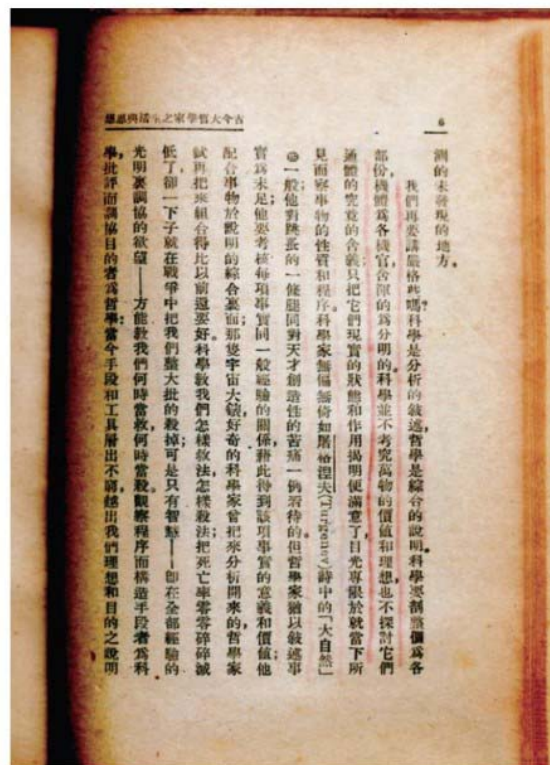 6
古今大哲學家之生活與思想
測的未發現的地方。
我們再要講嚴格些嗎?科學是分析的敍述,哲學是綜合的說明。科學要割整個爲各
部份,機體爲各機官,含渾的爲分明的。科學並不考究萬物的價値和理想,也不探討它們
通體的究竟的含義,只把它們現實的狀態和作用揭明便滿意了,目光專限於就當下所
見而察事物的性質和程序。科學家無偏無倚如屠格涅夫(Turgenev)詩中的「大自然」
一般,他對跳蚤的一條腿同對天才創造性的苦痛一例看待的。但哲學家猶以敍述事
實爲未足;他要考核每項事實同一般經驗的關係,藉此得到該項事實的意義和價値;他
配合事物於說明的綜合裏面;那隻宇宙大錶,好奇的科學家曾把來分析開來的,哲學家
試再把來組合得比以前還要好。科學敎我們怎樣救法,怎樣殺法;把死亡率零零碎碎減
低了,卻一下子就在戰爭中把我們整大批的殺掉;可是只有智慧——卽在全部經驗的
光明裏調協的欲望——方能敎我們何時當救,何時當殺。觀察程序而構造手段者爲科
學,批評而調協目的者爲哲學;當今手段和工具層出不窮,越出我們理想和目的之說明